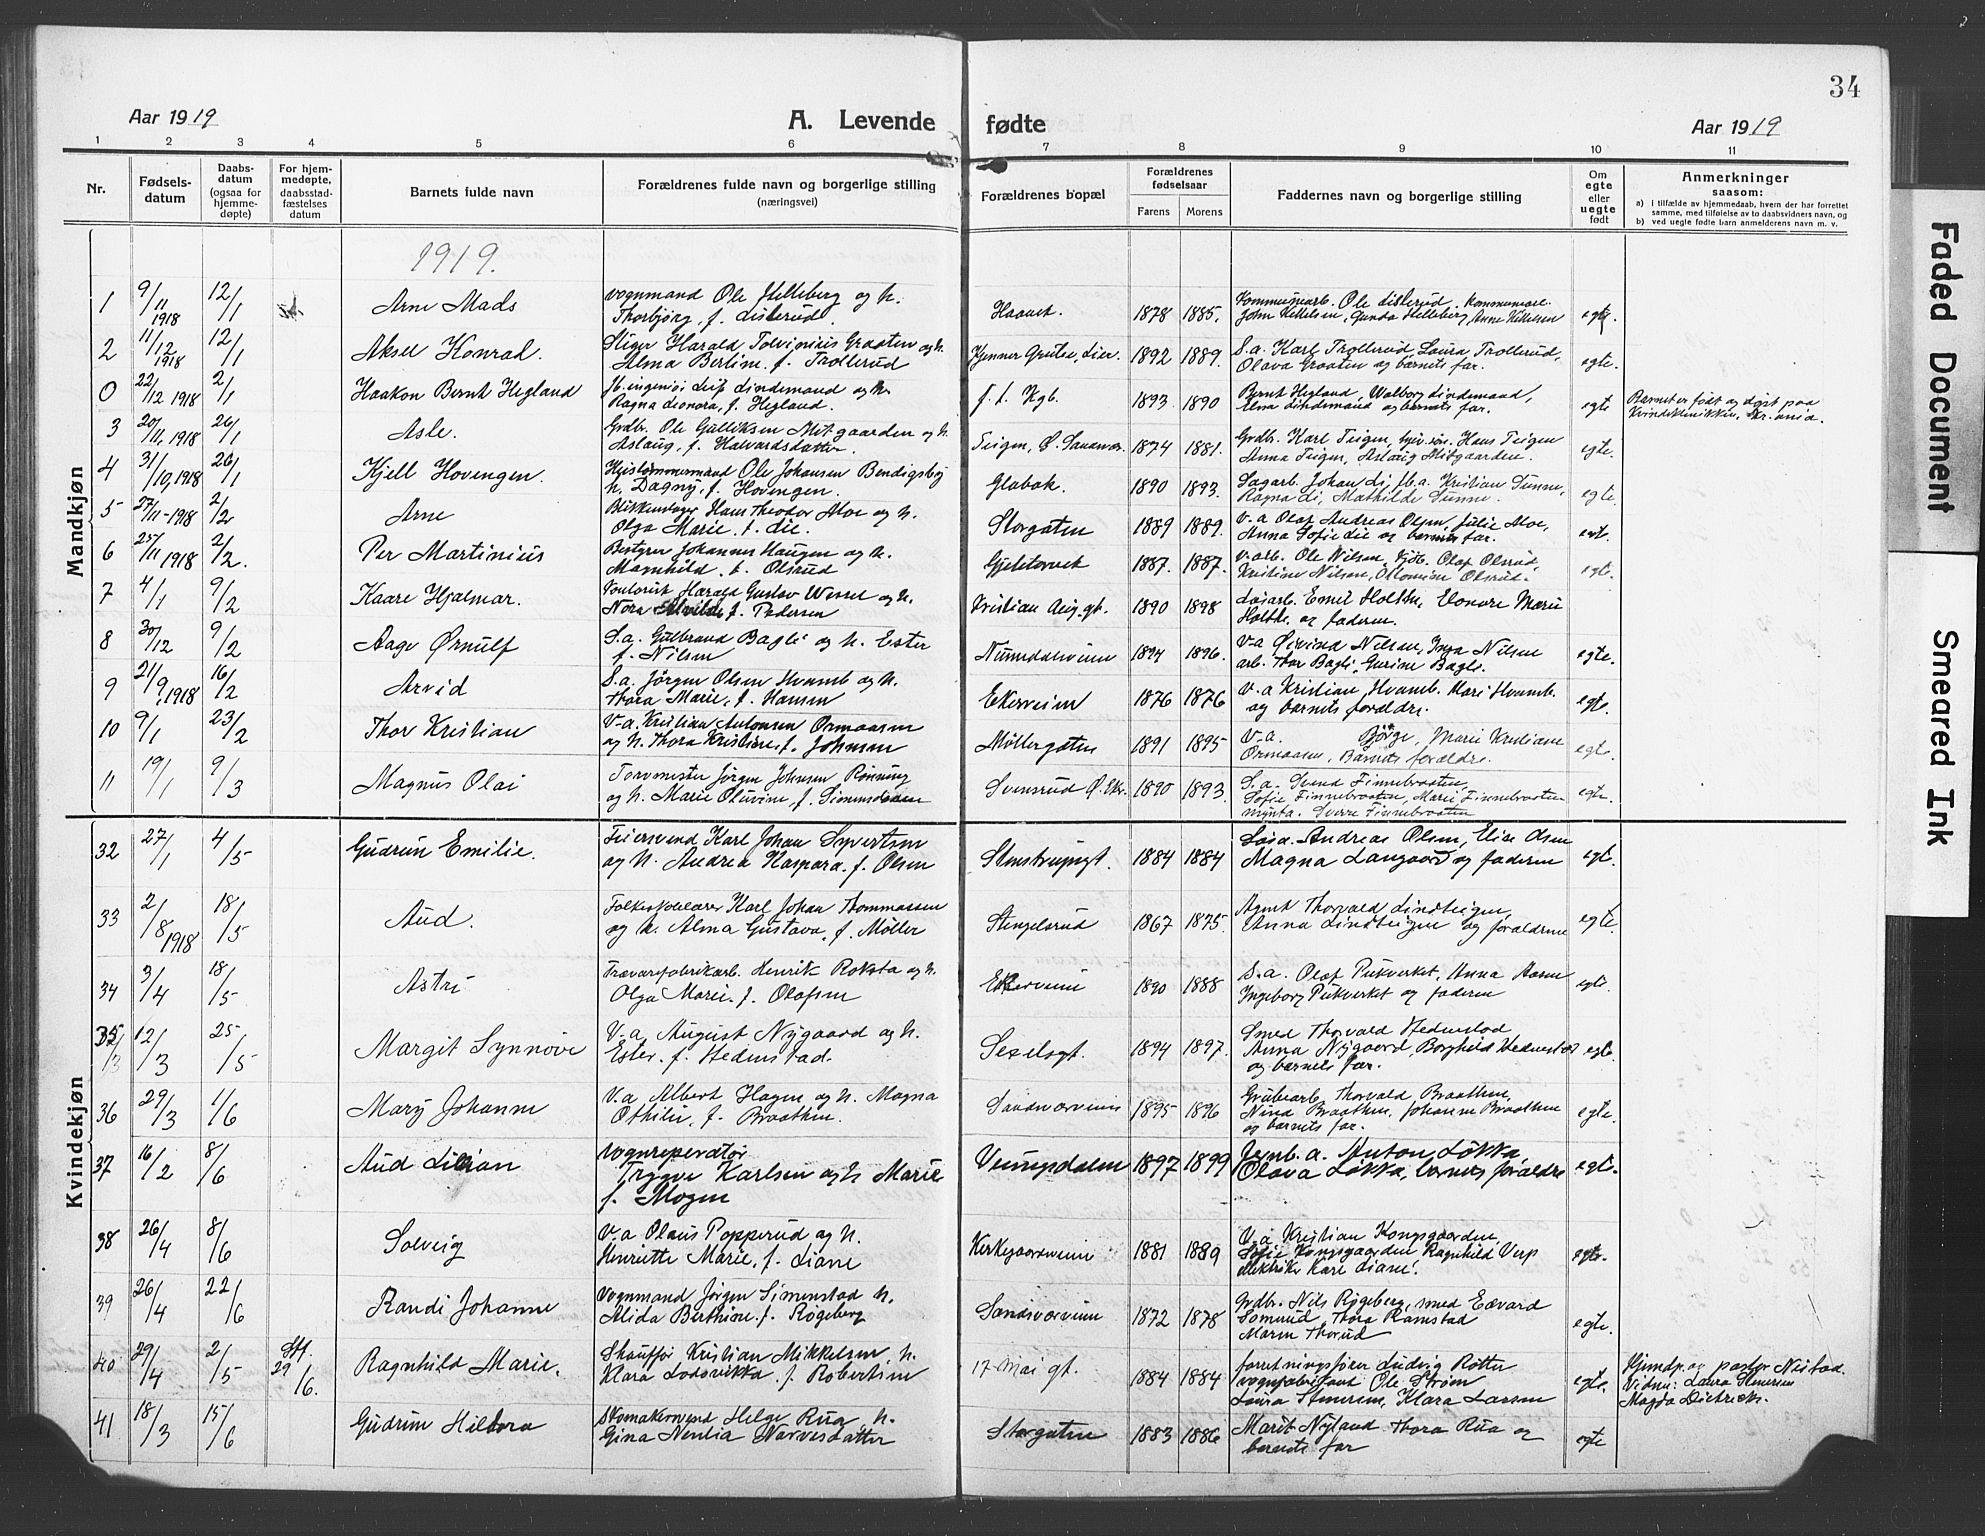 34
Aar 1919
A. Levende fødte
Aar 1919
1 2 3 4 5 6 7 8 9 10 11
Nr.
Fødsels-
datum
Daabs-
datum
(ogsaa for
hjemme-
døpte)
For hjem-
medøpte,
daabsstad-
fæstelses
datum
Barnets fulde navn
Forældrenes fulde navn og borgerlige stilling
(næringsvei)
Forældrenes bopæl
Forældrenes
fødselsaar
Farens Morens
Faddernes navn og borgerlige stilling
Om
egte
eller
uegte
født
Anmerkninger
saasom:
a) i tilfælde av hjemmedaab, hvem der har forrettet
samme, med tilføielse av to daabsvidners navn, og
b) ved uegte fødte barn anmelderens navn m. v.
Mandkjøn
1919.
1 9/11 1918 12/1 Arne Mads
vognmand Ole Helleberg og h.
Thorbjørg, f. Listerud.
Haavet. 1878 1885.
Kommunearb. Ole Listerud, Kommunearb.
John Kittelsen, Gunda Helleberg, Anne Kittelsen
egte.
2 11/12 1918 12/1 Aksel Konrad.
Stiger Harald Tolvinius Graaten og h.
Alma Bertine f. Trollerud
1892 1889.
S.a. Karl Trollerud, Laura Trollerud,
Olava Graaten og barnets far.
egte.
0 22/12 1918 2/1 Haakon Bernt Hegland
Jb. ingeniør Leif Lindemand og h.
Ragna Leonora, f. Hegland.
f. t. Kgb. 1893 1890
Bernt Hegland, Valborg Lindemand,
Elna Lindemand og barnets far.
egte
Barnet er født og døpt paa
Kvindeklinikken, Kr.ania.
3 20/11 1918 26/1 Asle.
Grdbr. Ole Gulliksen Mitgaarden og h.
Aslaug, f. Halvardsdatter.
Teigen, Ø. Sandsvær. 1874 1881.
Grdbr. Karl Teigen, Hans Teigen
Anna Teigen, Aslaug Mitgaarden.
egte.
4 31/10 1918 26/1 Kjell Hovengen.
Ole Johansen Bendigsby
h. Dagny, f. Hovengen.
Glabak. 1890 1893.
Sagarb. Johan Li, Jb.a. Kristian Sunne,
Ragna Li, Mathilde Sunne.
egte
5 27/11-1918 2/2 Arne
Blikkenslager Hans Theodor Moe og h.
Olga Marie f. Lie.
Storgaten 1889 1889.
V.a Olaf Andreas Olsen, Julie Moe,
Anna Sofie Lie og barnets far.
egt.
6 25/11 1918 2/2. Per Martinius
Bestyrer Johannes Haugen og h.
Magnhild f. Olsrud
Gjeletorvet 1887. 1887.
V.arb. Ole Nilsen, Kjøb. Olaf Olsrud,
Kristine Nilsen, Olsrud.
egte.
7 4/1 9/2 Kaare Hjalmar.
Kontorist Harald Gustav Wessel og h.
Nora Alvilde f. Pedersen
Kristian Aug. gt. 1890 1898
Løsarb. Emil Holthe, Elonore Marie
Holthe og faderen.
8 30/12 9/2 Aage Ørnulf
S.a. Gulbrand Bagli og h. Ester
f. Nilsen
Numedalsveien 1894 1896.
V-a Øivind Nilsen, Inga Nilsen
arb. Thor Bagli, Gurine Bagli.
egte.
9 21/9 1918 16/2 Arvid
S.a. Jørgen Olsen Hvamb og h.
Thora Marie, f. Hansen
Ekersveien 1876 1876
V.a Kristian Hvamb. Kari Hvamb.
og barnets forældre.
egte.
10 9/1 23/2 Thor Kristian
V-a. Kristian Antonsen Ormaasen
og h. Thora Kristine, f. Johnsen
Møllergaten 1891 1895
V-a. Børge, Marie Kristiane
Ormaasen, Barnets forældre.
egte.
11 19/1 9/3 Magnus Olai
Torvmester Jørgen Johnsen Rønning
og h. Marie Oluvine, f. Simensdatter
Svensrud Ø. Eker. 1890 1893.
S.a. Svend Finnebraaten,
Sofie Finnebraaten, Marie Finnebraaten
Sverre Finnebraaten
egte.
Kvindekjøn
32 27/1 4/5 Gudrun Emilie.
Feiersvend Karl Johan Syvertsen
og h. Andrea Kaspara. f. Olsen
Stenstrupsgt. 1884 1884
Løsa. Andreas Olsen, Elise Olsen
Magna Langaard og faderen
egt.
33 2/8 1918 18/5 Aud.
Folkeskolelærer Karl Johan Thommassen
og h. Alma Gustava, f. Møller
Stengelsrud 1867 1875.
Agent Thorvald Lindteigen,
Anna Lindteigen og forældrene
egte.
34 3/4 18/5 Astri
Trævarefabrikarb. Henrik Roksta og h.
Olga Marie. f. Olafsen
Ekersveien 1890 1888
S.a. Olaf Pukverket, Anna Aasen
Ingeborg Pukverket og faderen
egte.
35 12/3 25/5 Margit Synnøve
V.a August Nygaard og h.
Ester. f. Hedenstad.
Sexelsgt. 1894 1897.
Smed Thorvald Hedenstad
Anna Nygaard, Borghild Hedenstad
og barnets far.
egte.
36 29/3 1/6 Mary Johanne
V.a Albert Hagen og h. Magna
Othilie, f. Braathen.
Sandsværveien 1895 1896
Grubearb Thorvald Braathen,
Nina Braathen, Johanne Braathen
og barnets far.
egte.
37 16/2 8/6 Aud Lilian
Vognreperatør
Trygve Karlsen og h Marie
f. Mogen
Veungsdalen 1897 1899
Jernb. a. Anton Løkka,
Olava Løkka, barnets forældre
egte.
38 26/4 8/6 Solveig
V.a Olaus Popperud og h.
Henriette Marie, f. Liane
Kirkegaardsveien 1881 1889
V.a Kristian Kongsgaarden
Sofie Kongsgaarden Ragnhild Verp
elektriker Karl Liane.
egte.
39 26/4 22/6 Randi Johanne
Vognmand Jørgen Simenstad h.
Alida Berthine. f. Røgeberg
Sandsværveien 1872 1878
Grdbr. Nils Røgeberg, smed Edvard
Somrud, Thora Ramstad
Maren Thorud
egte.
40 29/4 2/5 Stf. 29/6. Ragnhild Marie.
Skauffør Kristian Mikkelsen, h.
Klara Lodovikka f. Robertsen
17 Mai gt. 1884 1884
forretningsfører Ludvig Røtter
vognfabrikant Ole Strøm
Laura Stenersen, Klara Larsen
egte.
Hjemdp. av pastor Nistad.
Vidner: Laura Stenersen
Magda Dietrichs.
41 18/3 15/6 Gudrun Hildora
Skomakersvend Helge Rua h.
Gina Narvesdatter
Storgaten 1883 1886
Marit Nyland Thora Rua og
barnets far
egte
Faded Document
Smeared Ink